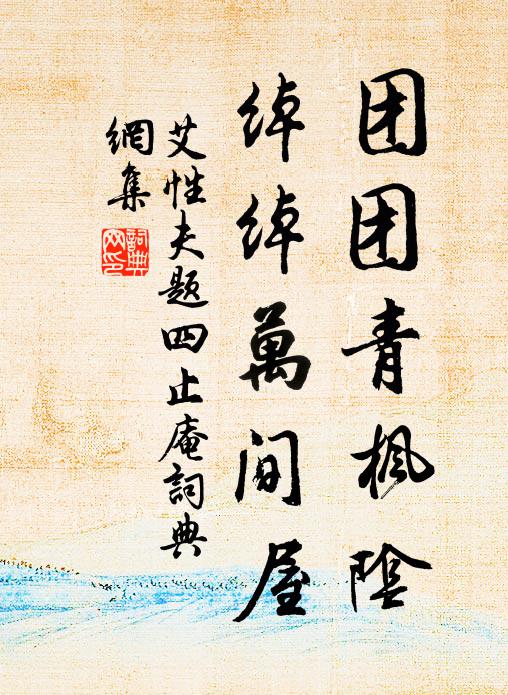 团团青枫陰
绰绰萬间屋
艾性夫题四止庵詞典
網集
詞典
网印